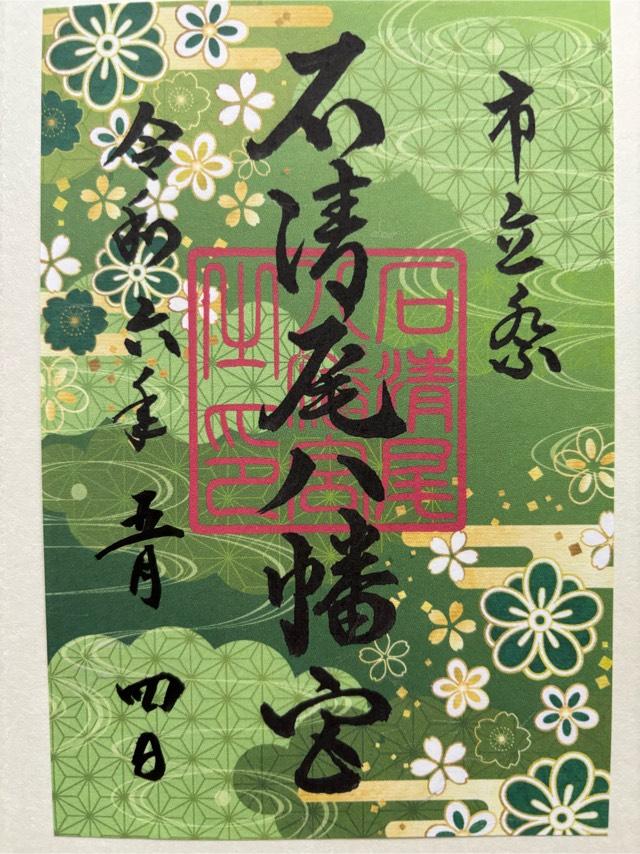 市立祭
石清尾八幡宮
石清尾
八幡宮
之印
令和六年五月四日